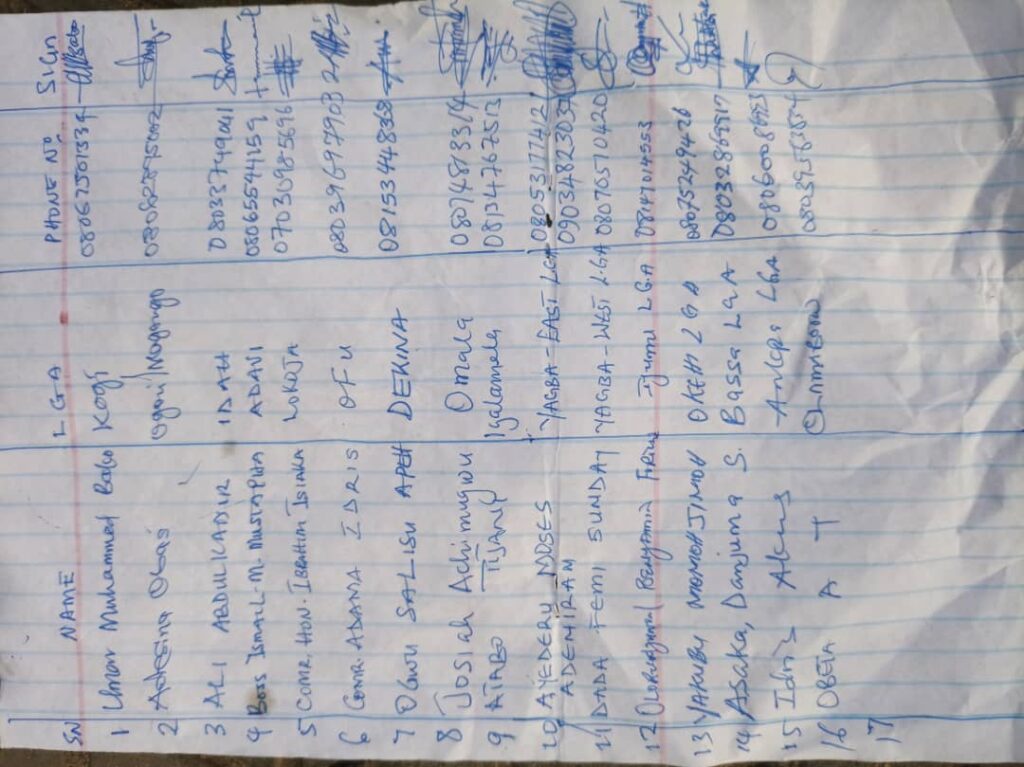 SN NAME LGA PHONE NO SIGN
1 Umar Muhammed Babo Kogi 08067501334
2 Adesina Obas Ogori/Magongo 08062895002
3 ALI ABDULKADIR IDAH 08033749041
4 Boss Ismail-M. MUSTAPHA ADAVI 08065541159
5 Comr. HON. IBRAHIM ISIAKA LOKOJA 07030985696
6 Comr. ADAMA IDRIS OFU 08039697903
7 OGWU SALISU APEH DEKINA 08153448868
8 JOSIAH Achimugwu Omala 08074813314
9 ATABO TIJANI Igalamela 08134767513
10 AYEDERU MOSES YAGBA-EAST LGA 08053177412
ADEMIRAN 09034823039
11 DADA FEMI SUNDAY YAGBA-WEST LGA 08070570420
12 Benjamin Ijumu LGA 08147014553
13 YAKUBU MOMOHJIMOH OKEHI LGA 08035249426
14 Asaka, Danjuma S. Bassa LGA 08032869817
15 Idris LGA
16 OBETA A T
17